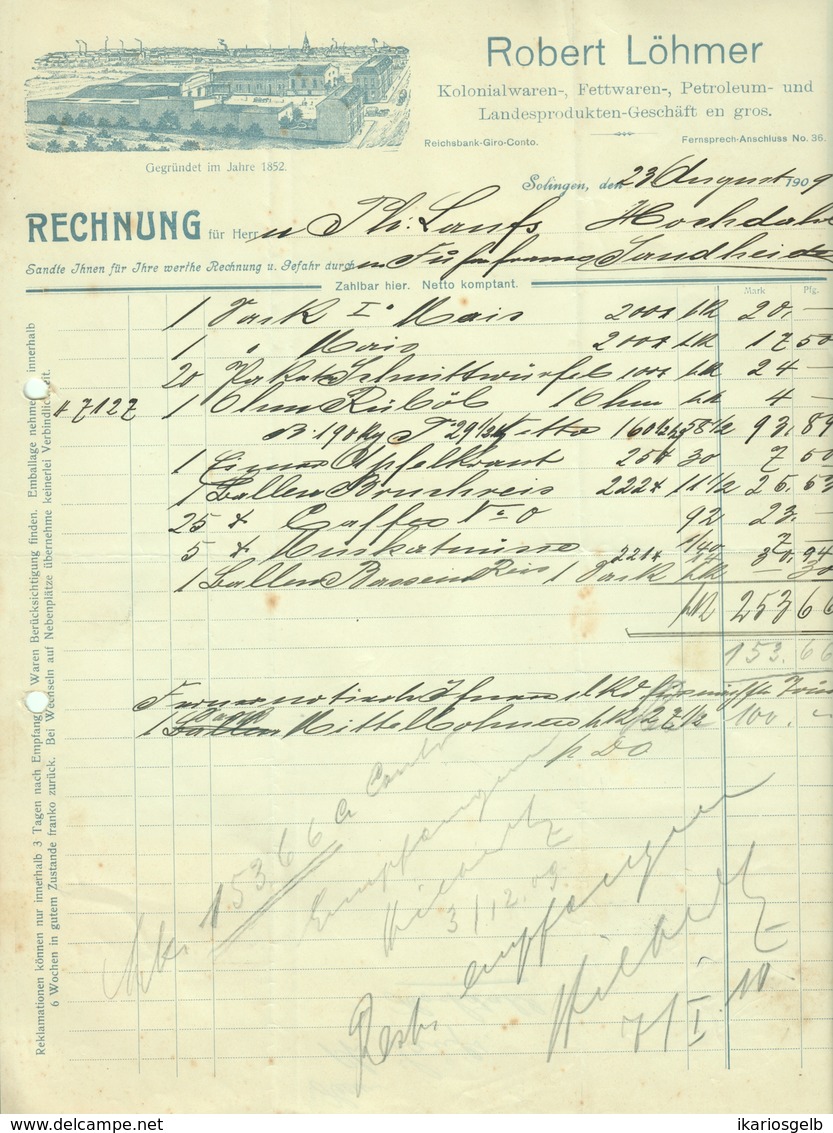 Robert Löhmer
Kolonialwaren-, Fettwaren-, Petroleum- und
Landesprodukten-Geschäft en gros.
Reichsbank-Giro-Conto. Fernsprech-Anschluss No. 36.
Gegründet im Jahre 1852.
Solingen, den 23 August 1909
RECHNUNG für Herrn Ph. Laufs Hochdahl
Sandte Ihnen für Ihre werthe Rechnung u. Gefahr durch Sandheide
Zahlbar hier. Netto komptant.
Mark Pfg.
1 Sack I Mais 200 20.—
1 " Mais 200 17 50
20 Paket Schnittwürfel 100 24 —
# 7127 1 Ohm Rüböl 1 Ohm 4 —
B. 190 kg T 29 1/2 Netto 160 1/2 kg 58 1/2 93.89
1 Eimer Apfelkraut 25 30 7 50
1 Ballen Bruchreis 222 11 1/2 25.53
25 Caffee No 0 92 23.—
5 Muskatnüsse 140 7 —
1 Ballen Bassein Reis 221 14 30.94
1 Sack 30
253 66
153.66
1 Ballen Mittel Bohnen 100.—
p DO
Mk. 153.66 Ct
Empfangen
3/12.09
Rest empfangen
7/I.10
Reklamationen können nur innerhalb 3 Tagen nach Empfang der Waren Berücksichtigung finden. Emballage nehme innerhalb
6 Wochen in gutem Zustande franko zurück. Bei Wechseln auf Nebenplätze übernehme keinerlei Verbindlichkeit.
delcampe.net
ikariosgelb